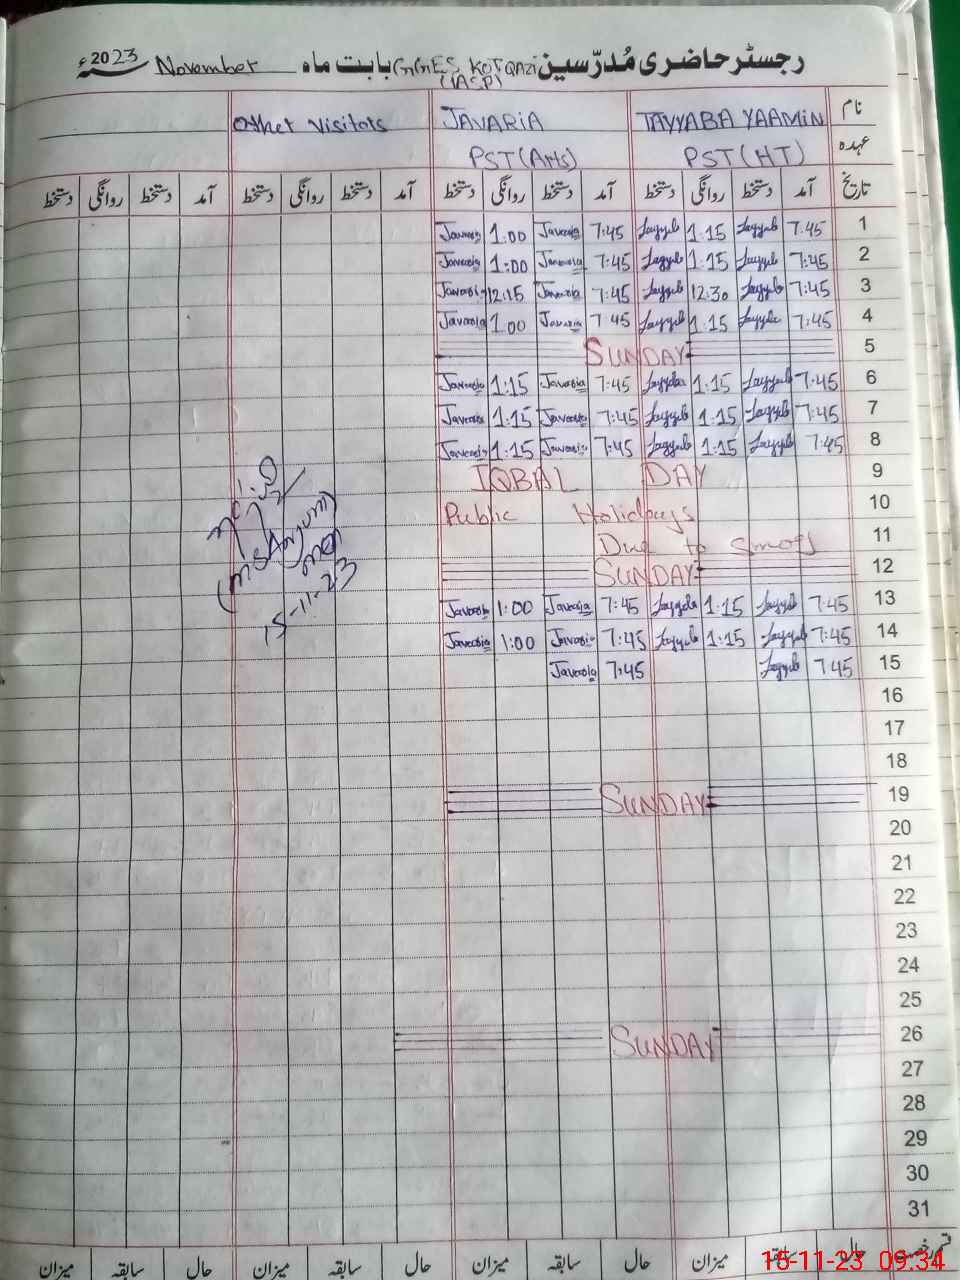 رجسٹر حاضری مُدرّسین GGES, KOT QAZI بابت ماہ November 2023ء
(IASP)
نام TAYYABA YAAMIN JAVARIA Other Visitors
عہدہ PST(HT) PST(AHs)
تاریخ آمد دستخط روانگی دستخط آمد دستخط روانگی دستخط آمد دستخط روانگی دستخط آمد دستخط روانگی دستخط
1 7:45 Tayyab 1:15 Tayyab 7:45 Javaria 1:00 Javaria
2 7:45 Tayyab 1:15 Tayyab 7:45 Javaria 1:00 Javaria
3 7:45 Tayyab 12:30 Tayyab 7:45 Javaria 12:15 Javaria
4 7:45 Tayyab 1:15 Tayyab 7:45 Javaria 1:00 Javaria
5 SUNDAY
6 7:45 Tayyab 1:15 Tayyab 7:45 Javaria 1:15 Javaria
7 7:45 Tayyab 1:15 Tayyab 7:45 Javaria 1:15 Javaria
8 7:45 Tayyab 1:15 Tayyab 7:45 Javaria 1:15 Javaria
9 IQBAL DAY
10 Public Holidays
11 Due to smog
12 SUNDAY
13 7:45 Tayyab 1:15 Tayyab 7:45 Javaria 1:00 Javaria
14 7:45 Tayyab 1:15 Tayyab 7:45 Javaria 1:00 Javaria
15 7:45 Tayyab 7:45 Javaria
(Ms Anjum)
15-11-23
16
17
18
19 SUNDAY
20
21
22
23
24
25
26 SUNDAY
27
28
29
30
31
حال سابقہ میزان حال سابقہ میزان حال سابقہ میزان حال سابقہ میزان
15-11-23 09:34